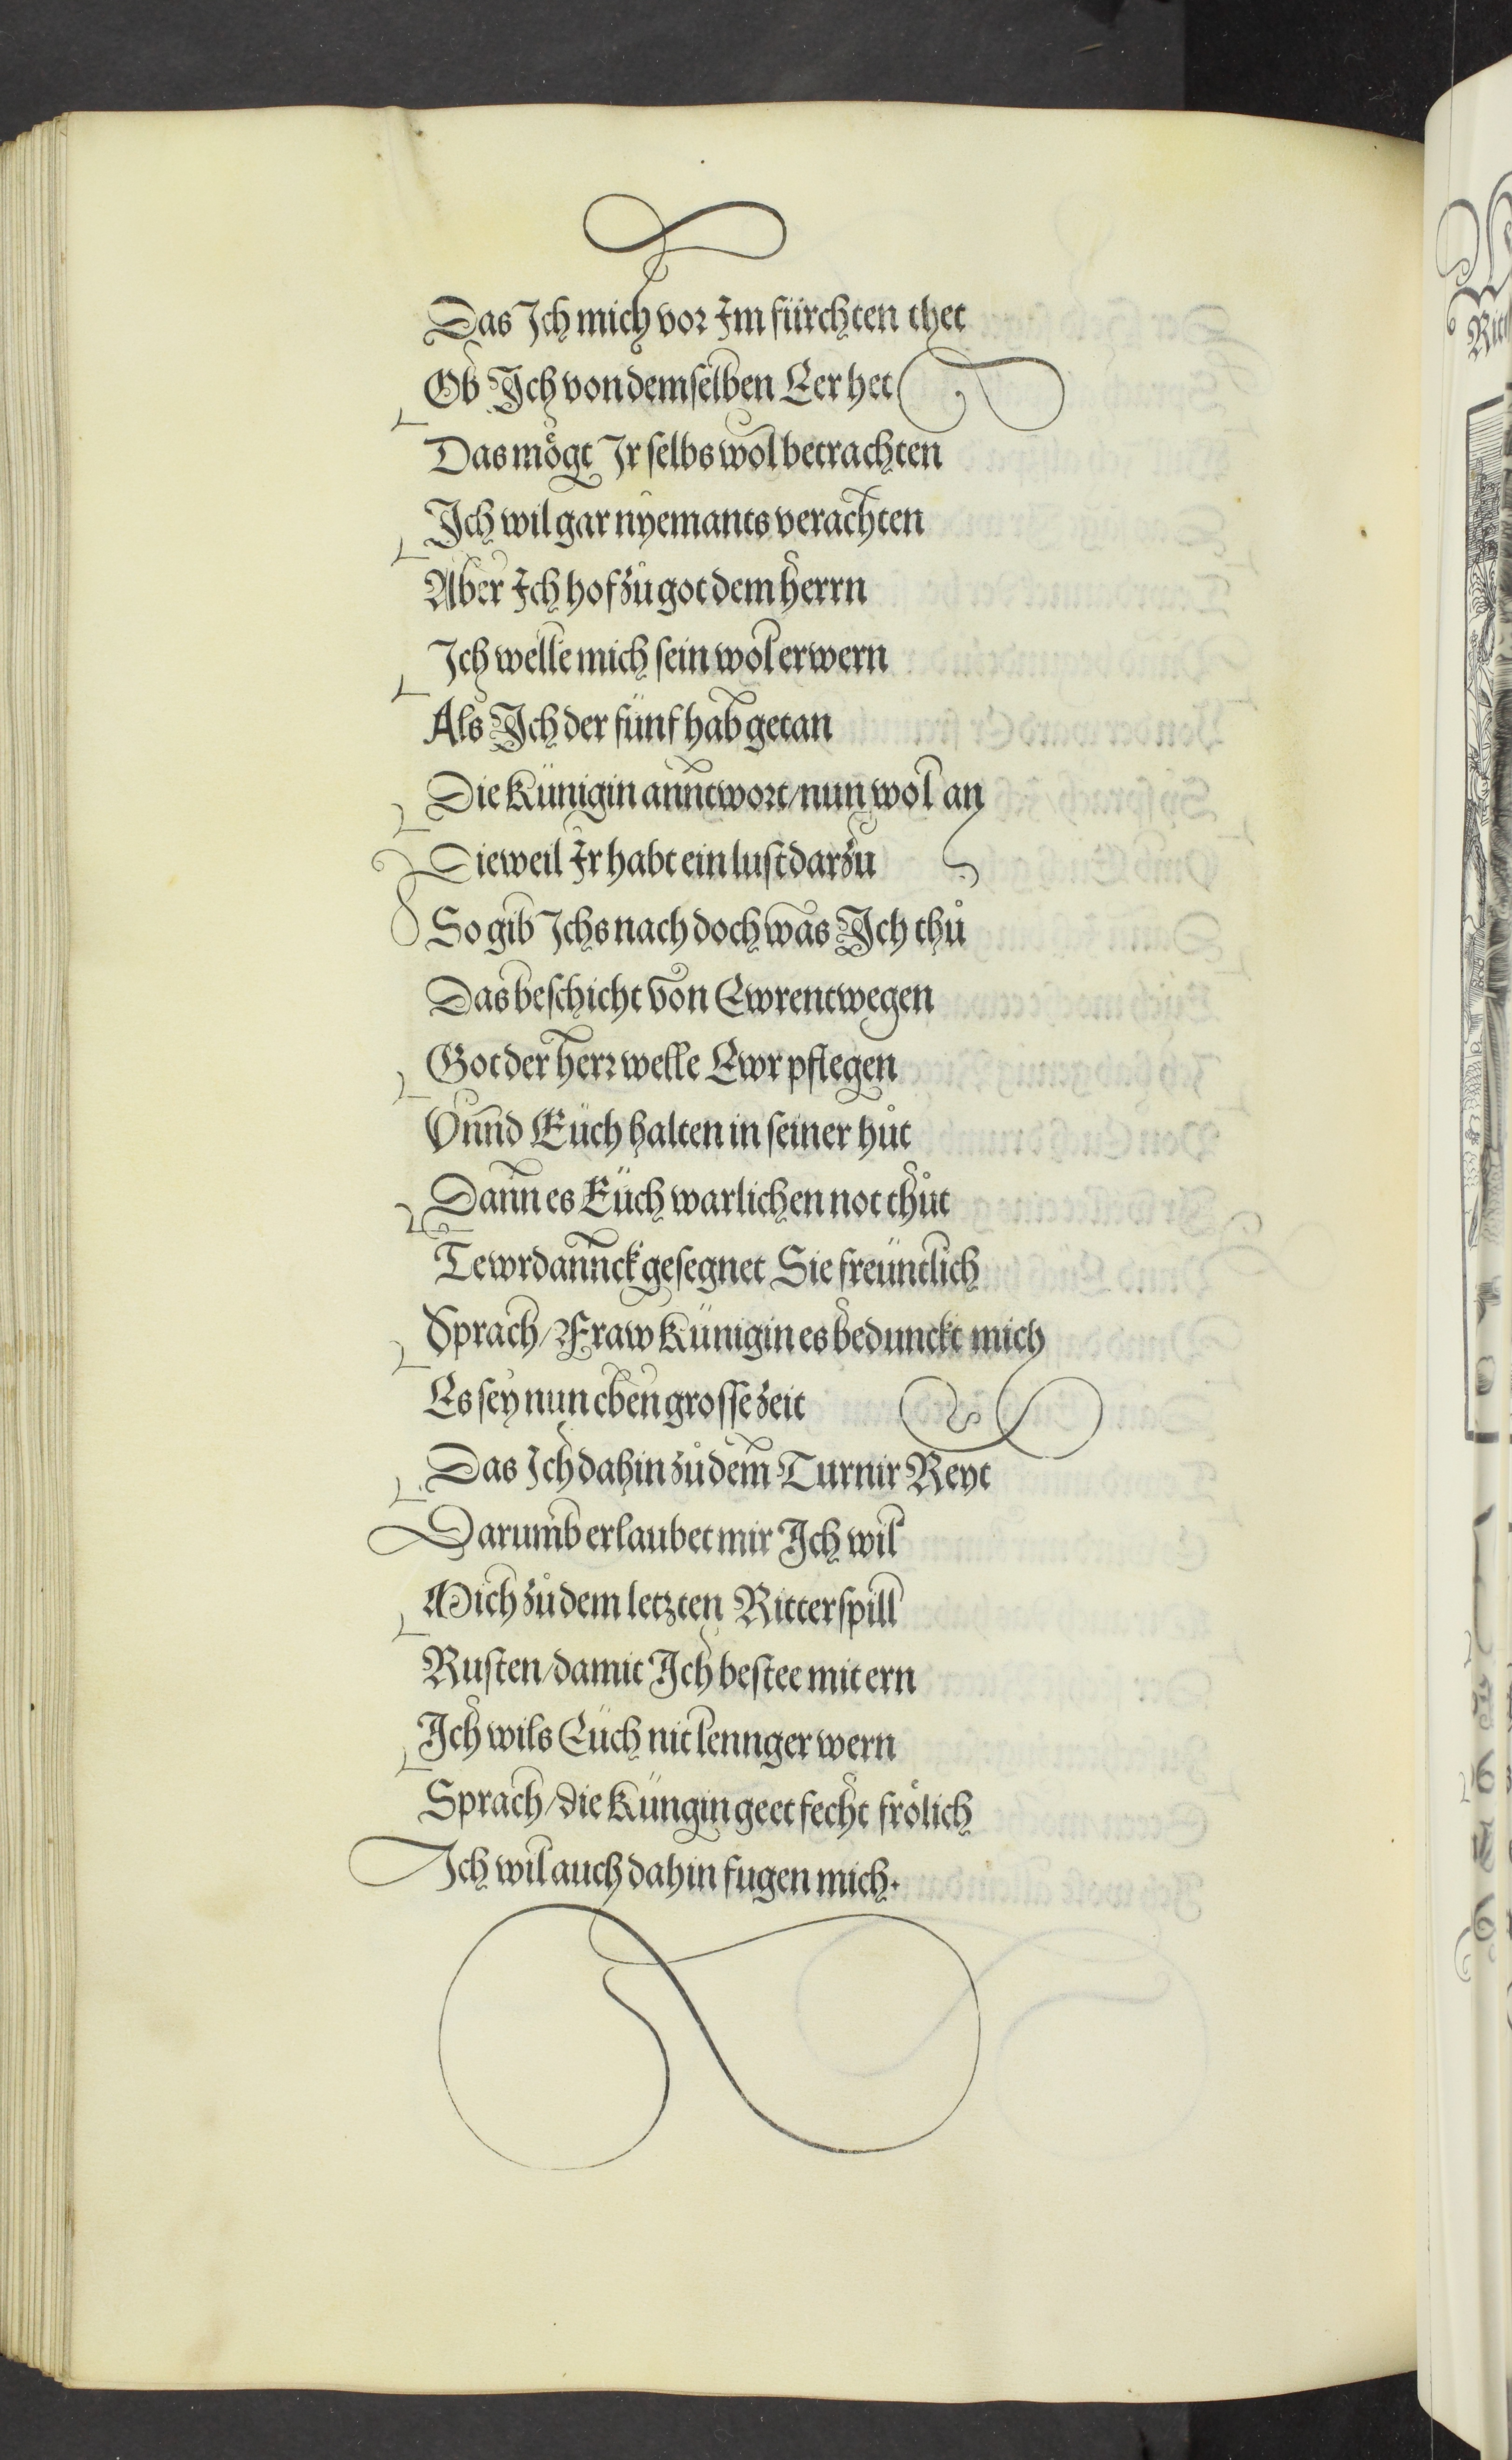 Das Ich mich vor Im fürchten thet
Ob Ich von demselben Eer het
Das mögt Ir selbs wol betrachten
Ich wil gar nyemants verachten
Aber Ich hof zů got dem herrn
Ich welle mich sein wol erwern
Als Ich der fünf hab getan
Die Künigin anntwort/nun wol an
Dieweil Ir habt ein lust darzu
So gib Ichs nach doch was Ich thů
Das beschicht von Ewrentwegen
Got der herr welle Ewr pflegen
Vnnd Euch halten in seiner hůt
Dann es Euch warlichen not thůt
Tewrdannck gesegnet Sie freüntlich
Sprach/Fraw Künigin es bedunckt mich
Es sey nun eben grosse zeit
Das Ich dahin zů dem Turnir Reyt
Darumb erlaubet mir Ich wil
Mich zů dem letzten Ritterspill
Rusten/damit Ich bestee mit ern
Ich wils Euch nit lennger wern
Sprach/die Küngin geet fecht frölich
Ich wil auch dahin fugen mich.